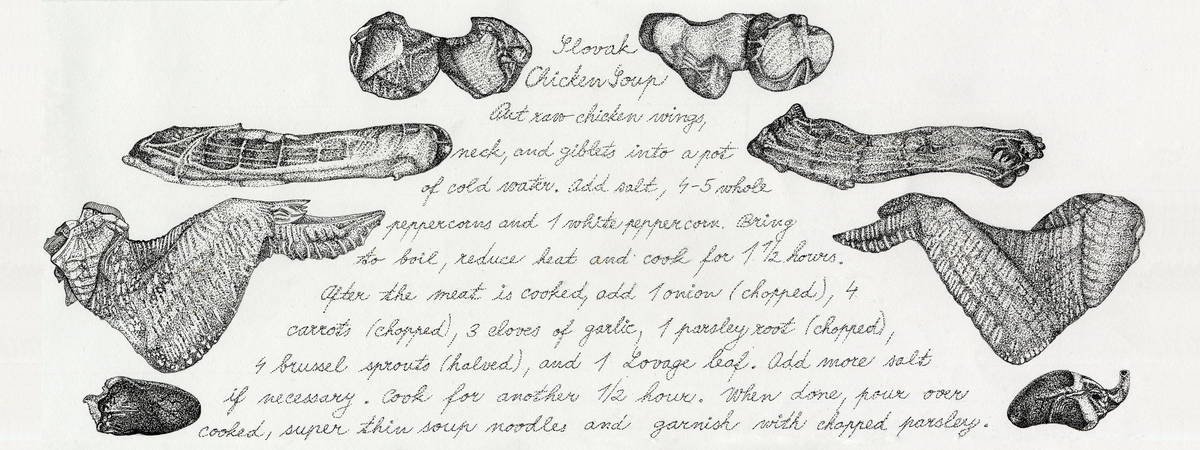 Slovak
Chicken Soup
Put raw chicken wings,
neck, and giblets into a pot
of cold water. Add salt, 4-5 whole
peppercorns and 1 white peppercorn. Bring
to boil, reduce heat and cook for 1 1/2 hours.
After the meat is cooked, add 1 onion (chopped), 4
carrots (chopped), 3 cloves of garlic, 1 parsley root (chopped),
4 brussel sprouts (halved), and 1 Lovage leaf. Add more salt
if necessary. Cook for another 1/2 hour. When done, pour over
cooked, super thin soup noodles and garnish with chopped parsley.